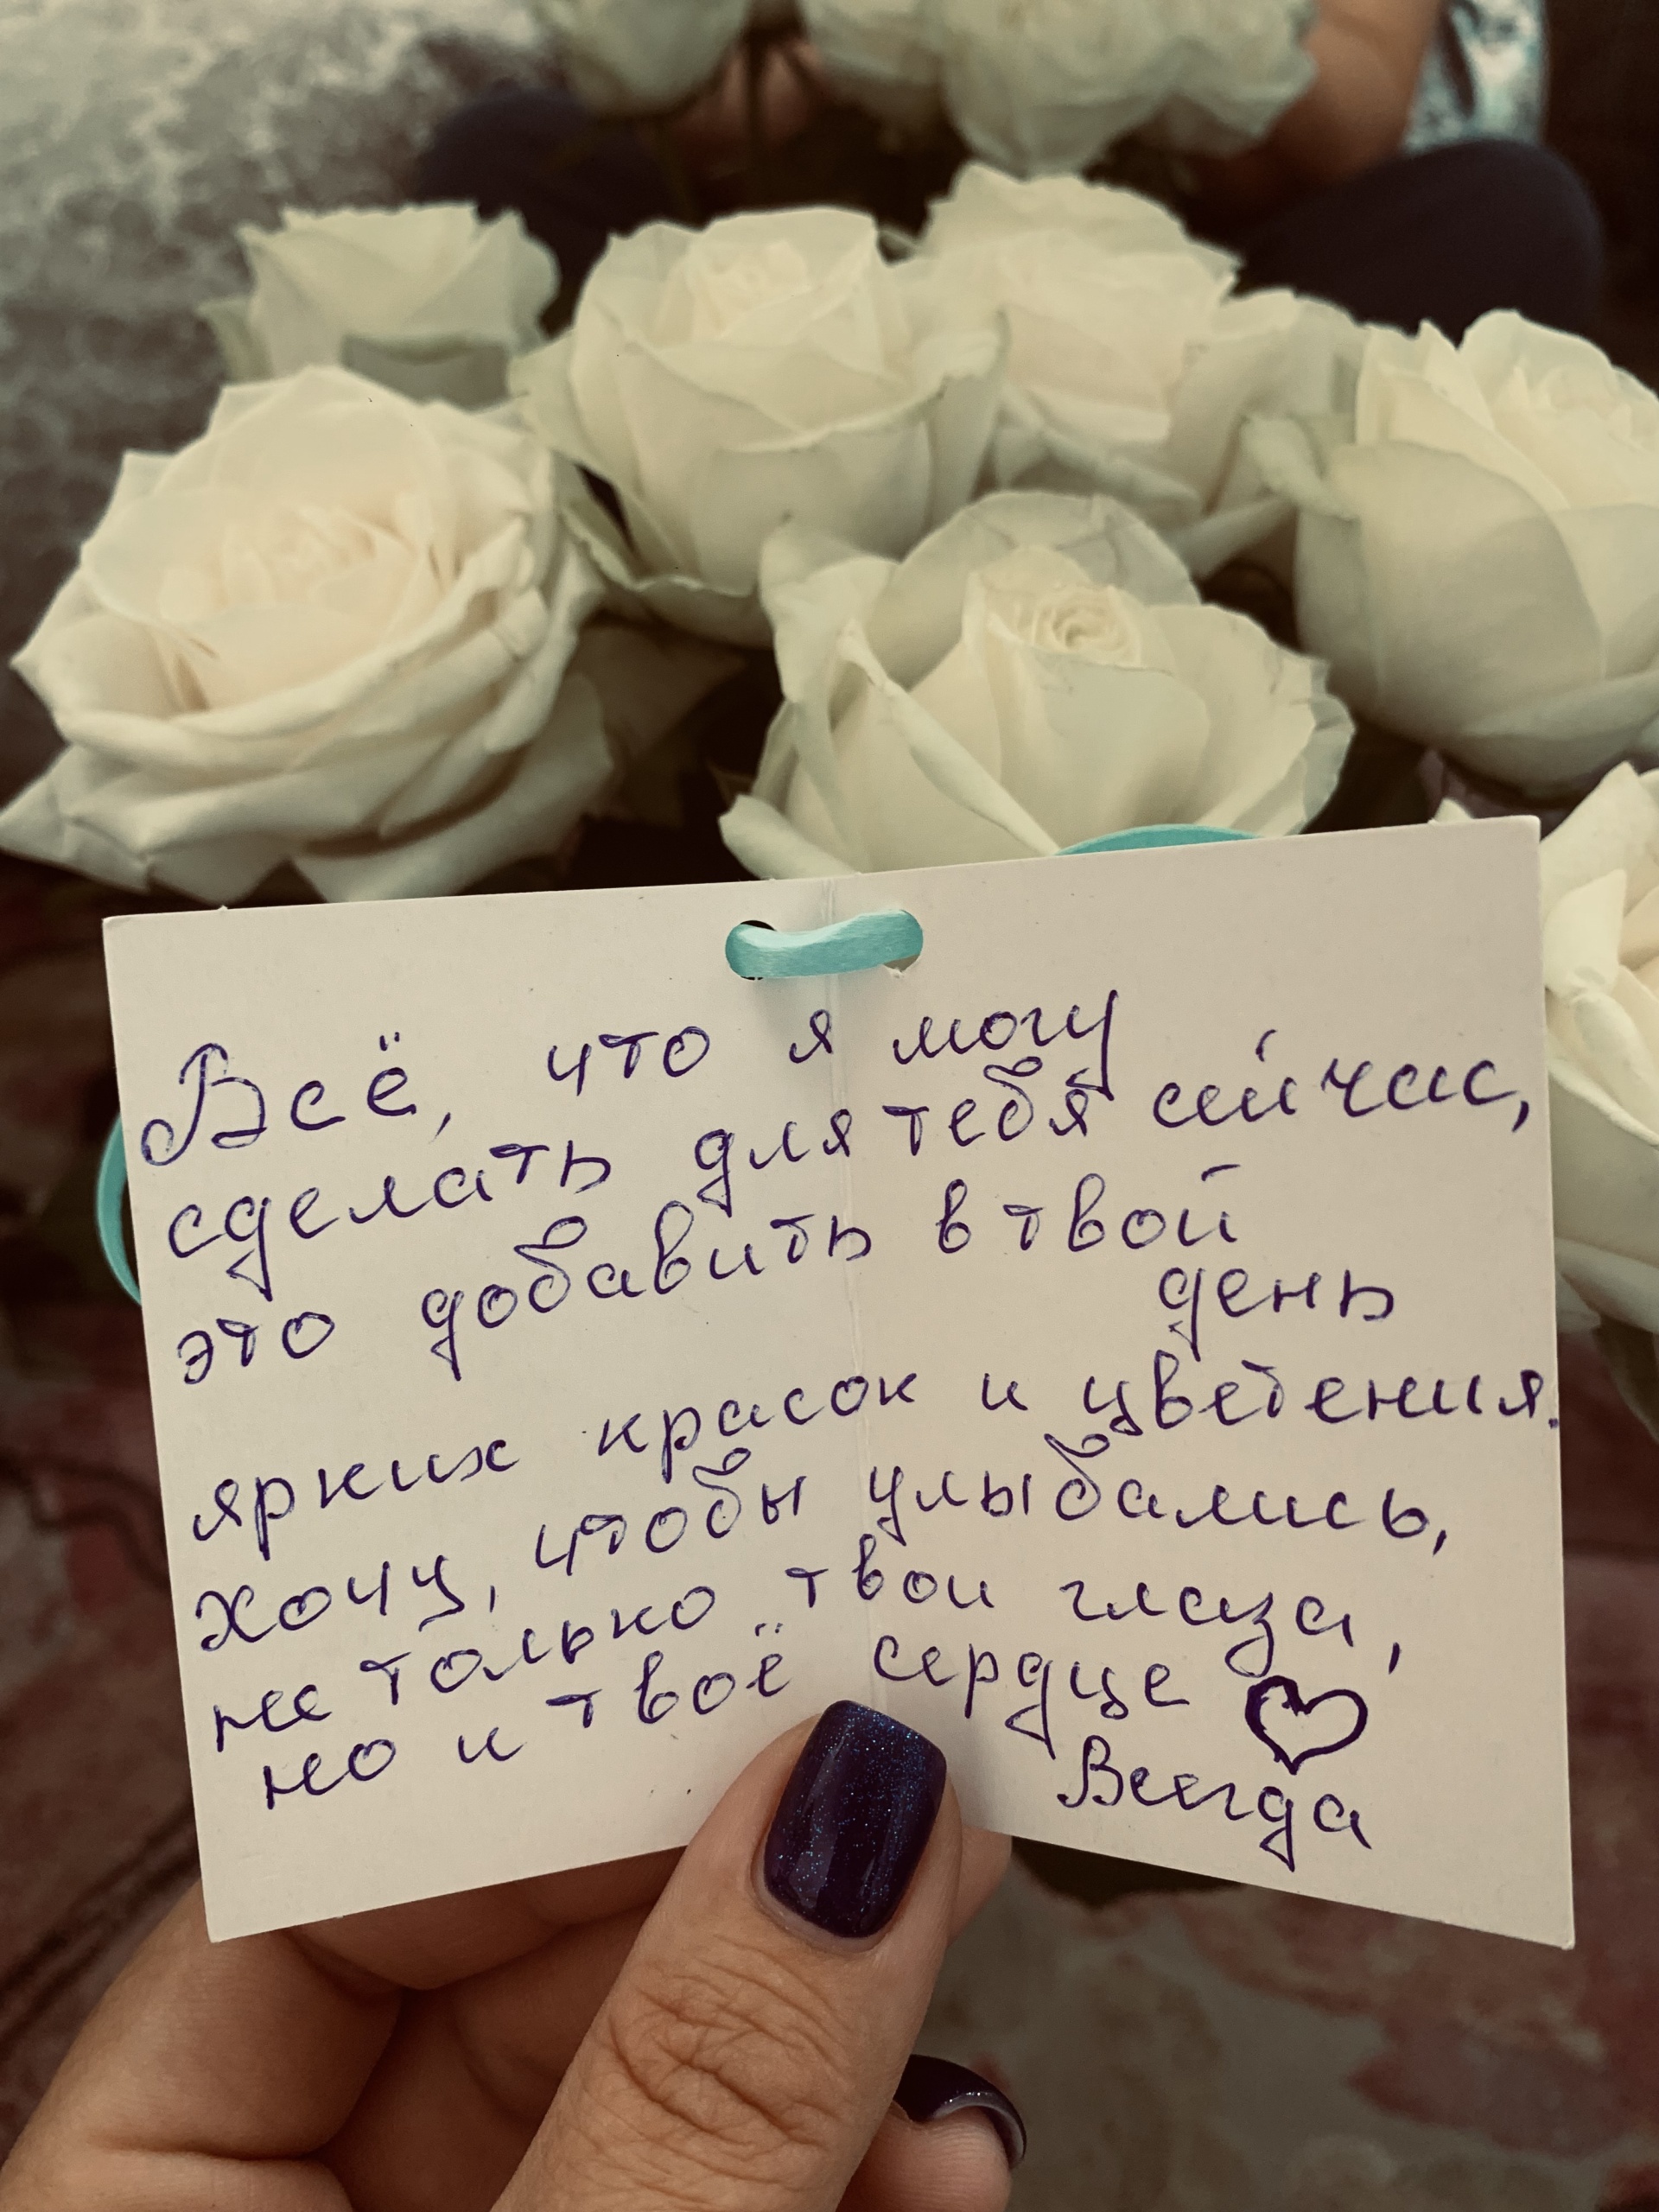 Всё, что я могу
сделать для тебя сейчас,
это добавить в твой
день
ярких красок и цветения.
Хочу, чтобы улыбались,
не только твои глаза,
но и твоё сердце
Всегда